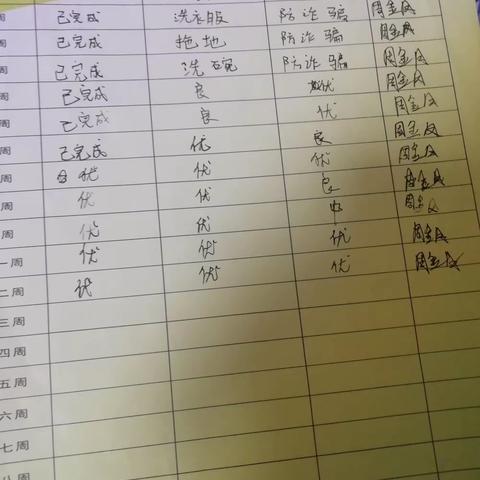 周 已完成 洗衣服 防诈骗 周金成
周 已完成 拖地 防诈骗 周金成
周 已完成 洗碗 防诈骗 周金成
周 已完成 良 优 周金成
周 已完成 良 优 周金成
周 已完成 优 良 周金成
周 优 优 优 周金成
周 优 优 良 周金成
周 优 优 中 周金成
一周 优 优 优 周金成
二周 优 优 优 周金成
三周
四周
五周
六周
七周
八周